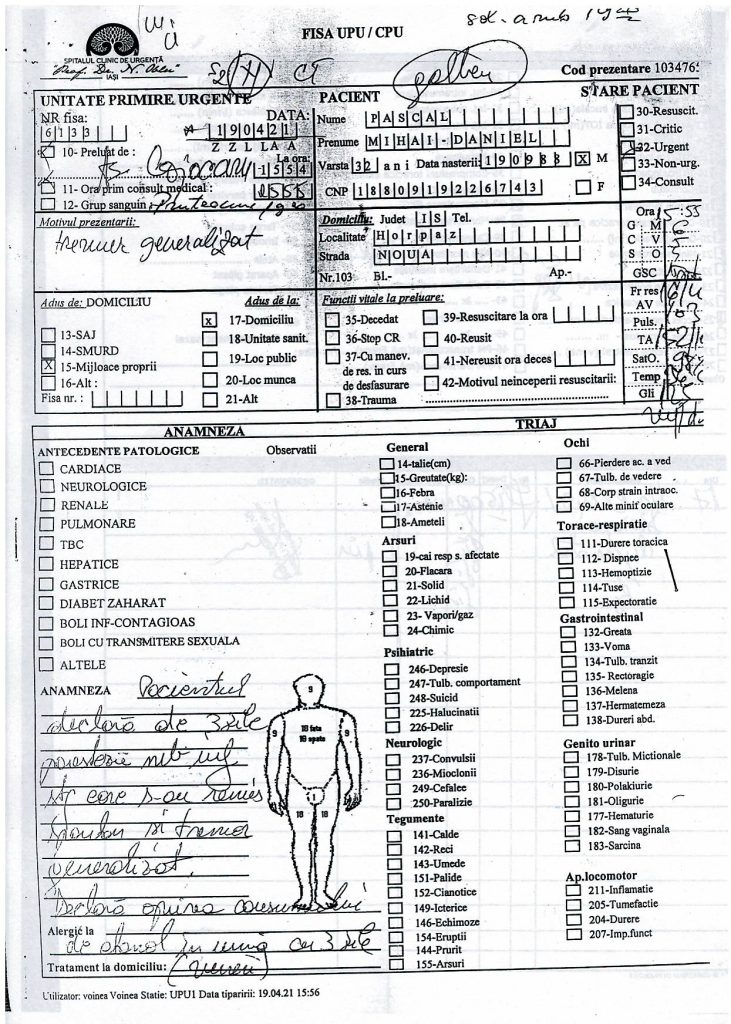 FISA UPU / CPU
SPITALUL CLINIC DE URGENȚĂ
"Prof. Dr. N. Oblu"
IAȘI
CT
galben
Cod prezentare 103476
UNITATE PRIMIRE URGENTE
PACIENT
STARE PACIENT
NR fisa:
6133
DATA:
190421
Z Z L L A A
10- Preluat de :
La ora:
1554
11- Ora prim consult medical :
1555
12- Grup sanguin
Nume PASCAL
Prenume MIHAI-DANIEL
Varsta 32 ani Data nasterii: 190988 X M
CNP 1880919226743 F
30-Resuscit.
31-Critic
32-Urgent
33-Non-urg.
34-Consult
Motivul prezentarii:
tremor generalizat
Domiciliu: Judet IS Tel.
Localitate Horpaz
Strada NOUA
Nr.103 Bl.- Ap.-
Ora 15:55
G M 6
C V 5
S O
GSC
Fr res
AV
Puls.
TA
SatO.
Temp
Gli
Adus de: DOMICILIU
13-SAJ
14-SMURD
X 15-Mijloace proprii
16-Alt :
Fisa nr. :
Adus de la:
X 17-Domiciliu
18-Unitate sanit.
19-Loc public
20-Loc munca
21-Alt
Functii vitale la preluare:
35-Decedat
36-Stop CR
37-Cu manev.
de res. in curs
de desfasurare
38-Trauma
39-Resuscitare la ora
40-Reusit
41-Nereusit ora deces
42-Motivul neinceperii resuscitarii:
ANAMNEZA
TRIAJ
ANTECEDENTE PATOLOGICE Observatii
CARDIACE
NEUROLOGICE
RENALE
PULMONARE
TBC
HEPATICE
GASTRICE
DIABET ZAHARAT
BOLI INF-CONTAGIOAS
BOLI CU TRANSMITERE SEXUALA
ALTELE
ANAMNEZA Pacientul
declară de 3 zile
parestezie
stg care s-au remis
spontan si tremor
generalizat.
Declară oprirea consumului
Alergic la
de etanol în urmă cu 3 zile
Tratament la domiciliu: (vineri)
9
18 fata
18 spate
9
9
1
18
18
General
14-talie(cm)
15-Greutate(kg):
16-Febra
17-Astenie
18-Ameteli
Arsuri
19-cai resp s. afectate
20-Flacara
21-Solid
22-Lichid
23- Vapori/gaz
24-Chimic
Psihiatric
246-Depresie
247-Tulb. comportament
248-Suicid
225-Halucinatii
226-Delir
Neurologic
237-Convulsii
236-Mioclonii
249-Cefalee
250-Paralizie
Tegumente
141-Calde
142-Reci
143-Umede
151-Palide
152-Cianotice
149-Icterice
146-Echimoze
154-Eruptii
144-Prurit
155-Arsuri
Ochi
66-Pierdere ac. a ved
67-Tulb. de vedere
68-Corp strain intraoc.
69-Alte minif oculare
Torace-respiratie
111-Durere toracica
112- Dispnee
113-Hemoptizie
114-Tuse
115-Expectoratie
Gastrointestinal
132-Greata
133-Voma
134-Tulb. tranzit
135- Rectoragie
136-Melena
137-Hertematemeza
138-Dureri abd.
Genito urinar
178-Tulb. Mictionale
179-Disurie
180-Polakiurie
181-Oligurie
177-Hematurie
182-Sang vaginala
183-Sarcina
Ap.locomotor
211-Inflamatie
205-Tumefactie
204-Durere
207-Imp.funct
Utilizator: voinea Voinea Statie: UPU1 Data tiparirii: 19.04.21 15:56